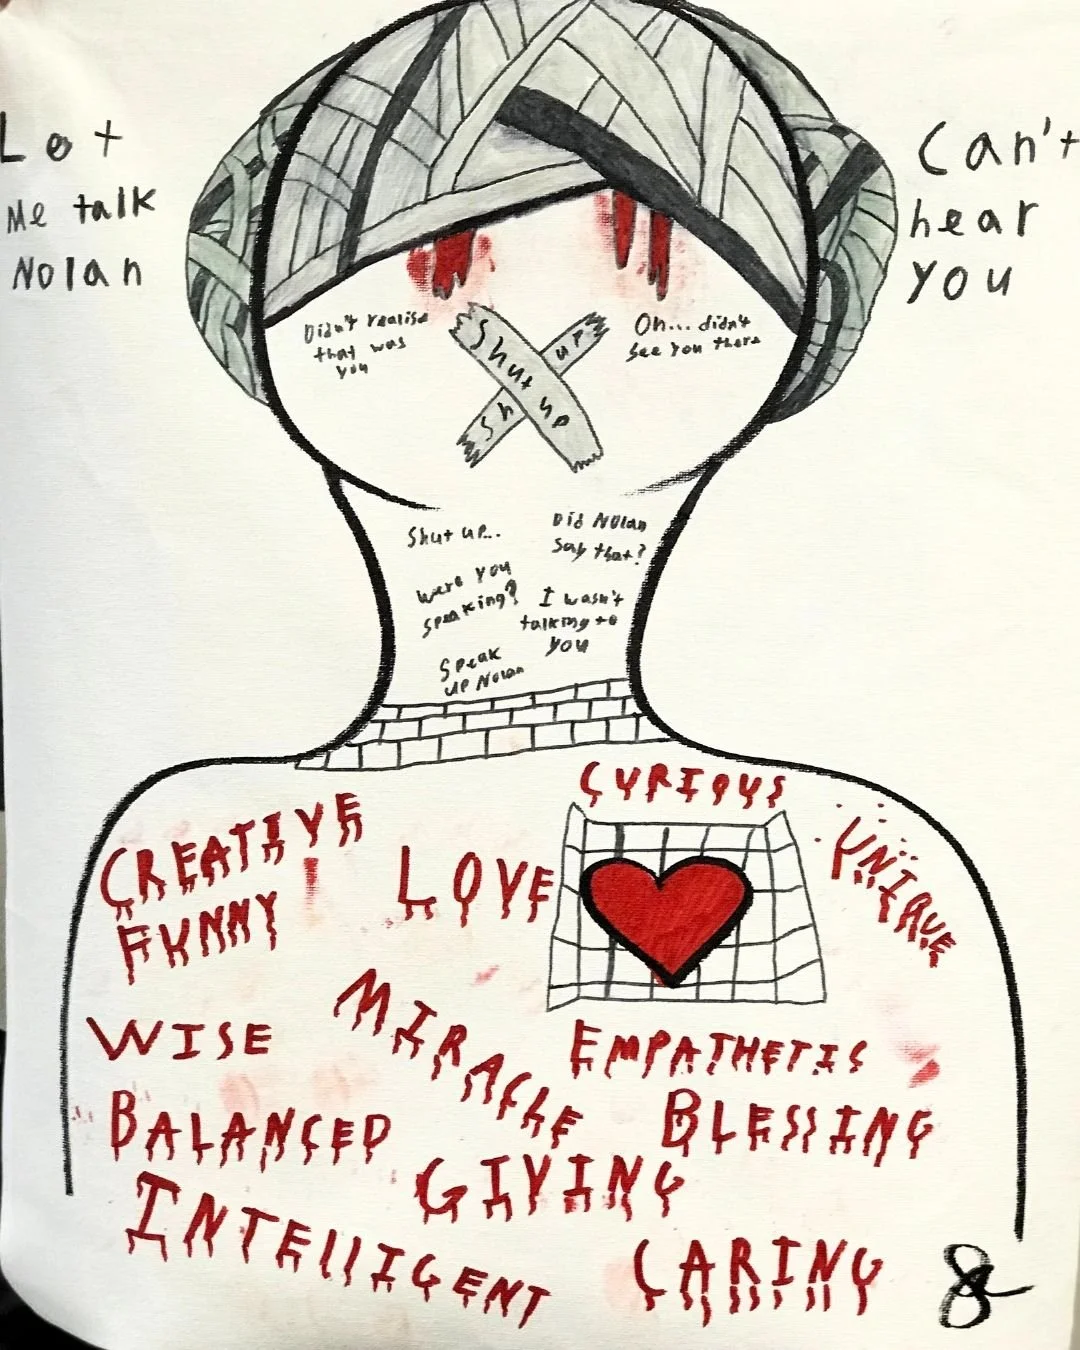 Let
Me talk
Nolan
Can't
hear
you
Didn't realise
that was
you
Shut up
Sh up
Oh... didn't
see you there
Shut up..
Were you
speaking?
Speak
up Nolan
Did Nolan
say that?
I wasn't
talking to
you
CREATIVE
FUNNY
LOVE
CURIOUS
UNIQUE
WISE
MIRACLE
EMPATHETIC
BALANCED
BLESSING
GIVING
INTELLIGENT
CARING